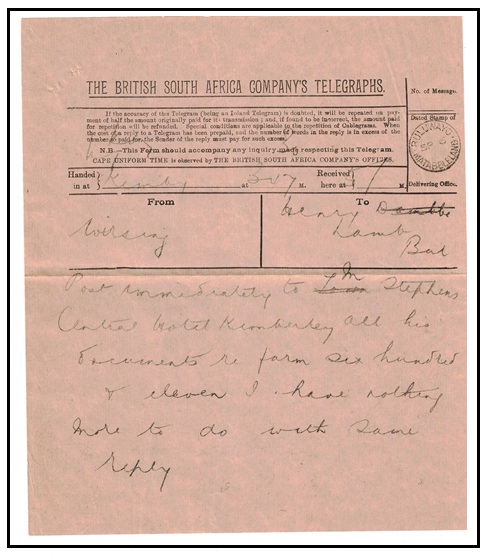 THE BRITISH SOUTH AFRICA COMPANY'S TELEGRAPHS.
No. of Message.
If the accuracy of this Telegram (being an Inland Telegram) is doubted, it will be repeated on pay-
ment of half the amount originally paid for its transmission; and, if found to be incorrect, the amount paid
for repetition will be refunded. Special conditions are applicable to the repetition of Cablegrams. When
the cost of a reply to a Telegram has been prepaid, and the number of words in the reply is in excess of the
number so paid for, the Sender of the reply must pay for such excess.
N.B.—This Form should accompany any inquiry made respecting this Telegram.
CAPE UNIFORM TIME IS OBSERVED BY THE BRITISH SOUTH AFRICA COMPANY'S OFFICES.
Dated Stamp of
BULUWAYO
SP 6
MATABELELAND
Delivering Office.
Handed in at Kimby at M. Received here at M.
From
To
Wirsing
Henry
Lamb
Post immediately to M Stephens
Central Hotel Kimberley all his
documents re farm six hundred
& eleven I have nothing
more to do with same
reply